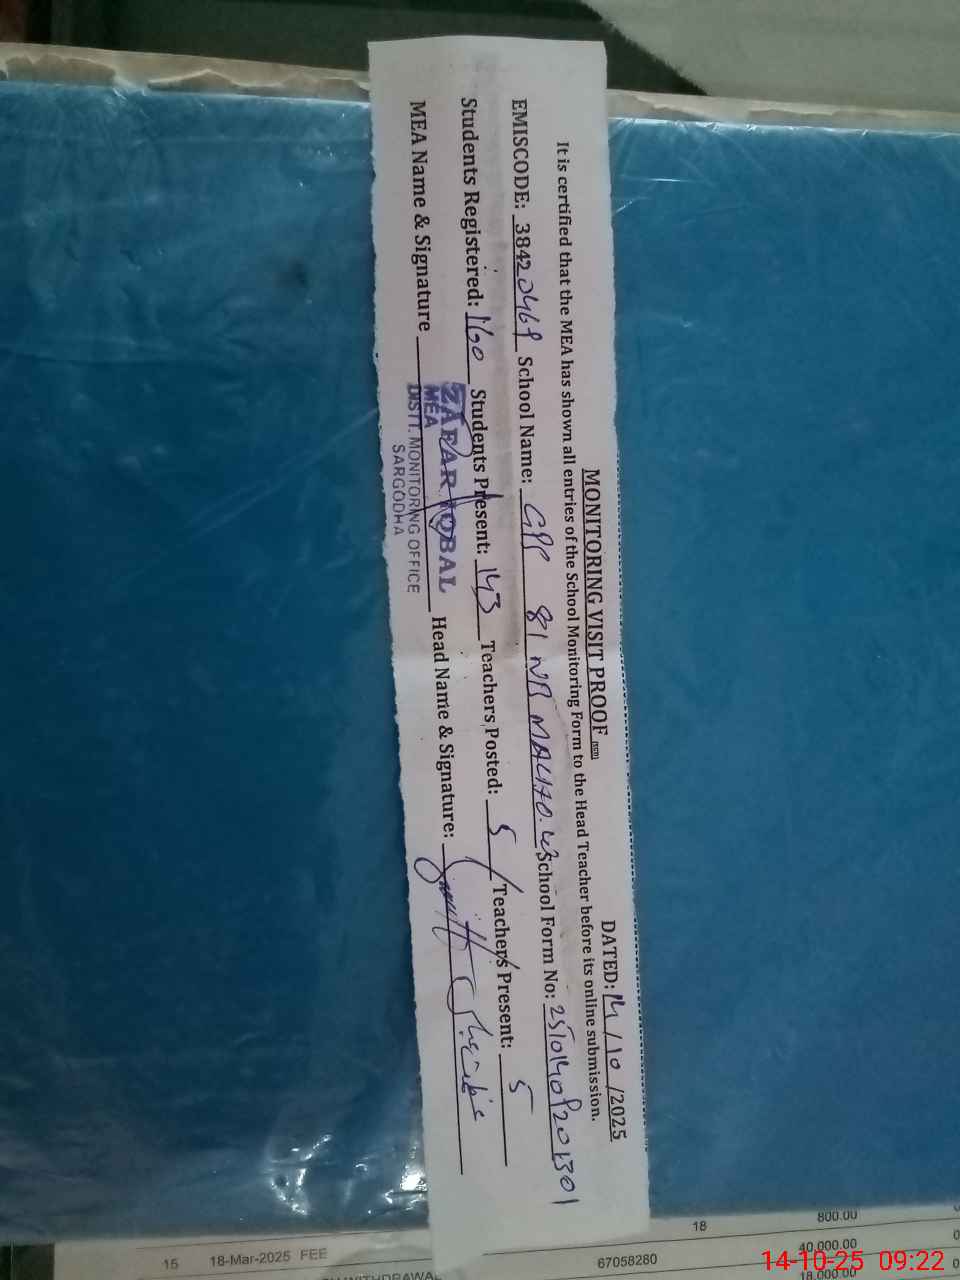 MONITORING VISIT PROOF
DATED: 14/10/2025
It is certified that the MEA has shown all entries of the School Monitoring Form to the Head Teacher before its online submission.
EMISCODE: 38420469 School Name: GPS 81 NB School Form No:
Students Registered: 160 Students Present: 143 Teachers Posted: 5 Teachers Present: 5
MEA Name & Signature Head Name & Signature:
ZAFAR IQBAL
MEA
DISTT. MONITORING OFFICE
SARGODHA
18 800.00
15 18-Mar-2025 FEE 67058280 40,000.00
18,000.00
14-10-25 09:22